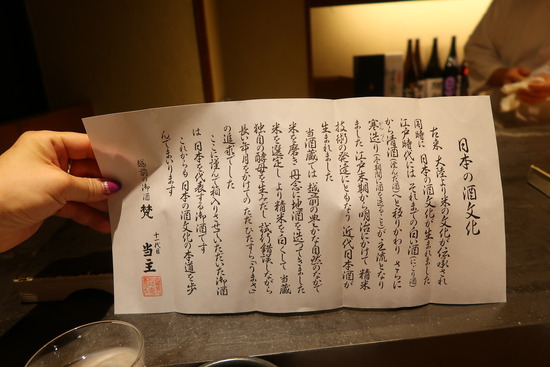 日本の酒文化
古来、大陸より米の文化が伝承され
同時に、日本の酒文化が生まれました
江戸時代には、それまでの白い酒(にごり酒)
から清酒(澄んだ酒)へと移りかわり、さらに
寒造り(冬期間酒を造ること)が主流となり
ました。江戸末期から明治にかけて、精米
技術の発達にともなう、近代日本酒が
生まれました
当酒蔵では、越前の豊かな自然のなかで
米を磨き、丹念に地酒を造ってきました
米を選定し、より精米を白くして、当蔵
独自の酵母を生みだし、試行錯誤しながら
長い年月をかけての、ただひたすら「うまさ」
の追求でした
ここに謹んで箱入りさせていただいた御酒
は、日本を代表する御酒です
これからも、日本の酒文化の本道を歩
んでまいります
越前の御酒 梵
十一代目 当主